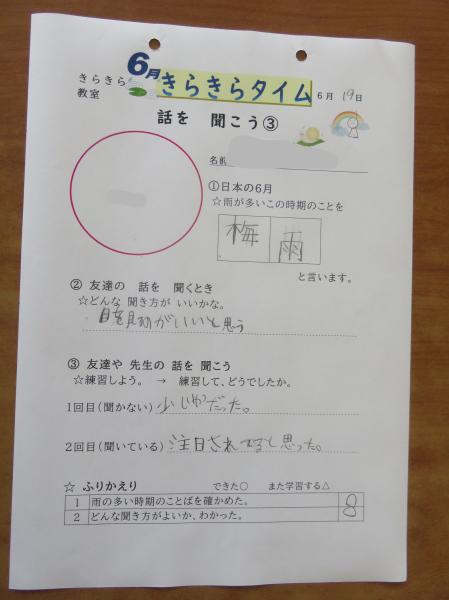 きらきら
教室
6月 きらきらタイム
6月 19日
話を 聞こう③
名前
①日本の6月
☆雨が多いこの時期のことを
梅雨
と言います。
② 友達の 話を 聞くとき
☆どんな 聞き方が いいかな。
目を見る がいいと思う
③ 友達や 先生の 話を 聞こう
☆練習しよう。 → 練習して、どうでしたか。
1回目(聞かない) だった。
2回目(聞いている) 注目されてると思った。
☆ ふりかえり
できた○ また学習する△
1 雨の多い時期のことばを確かめた。
2 どんな聞き方がよいか、わかった。